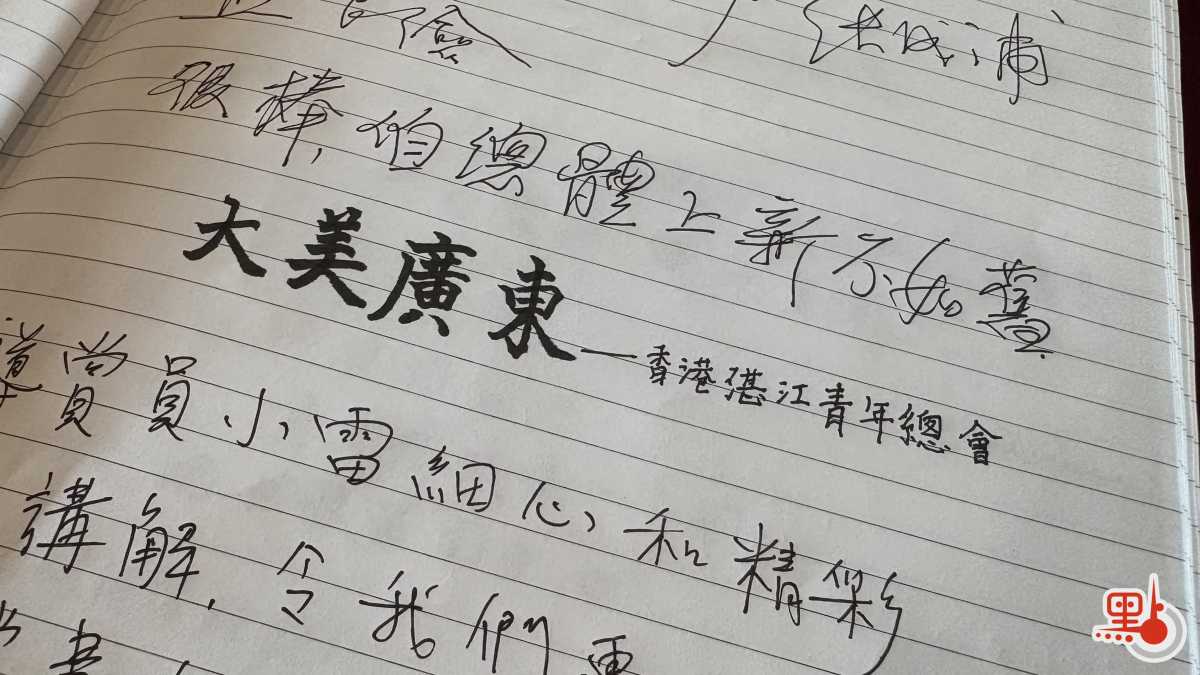 很棒,但總體上新不如舊
大美廣東——香港湛江青年總會
導賞員小雷細心和精彩
講解,令我們更
點